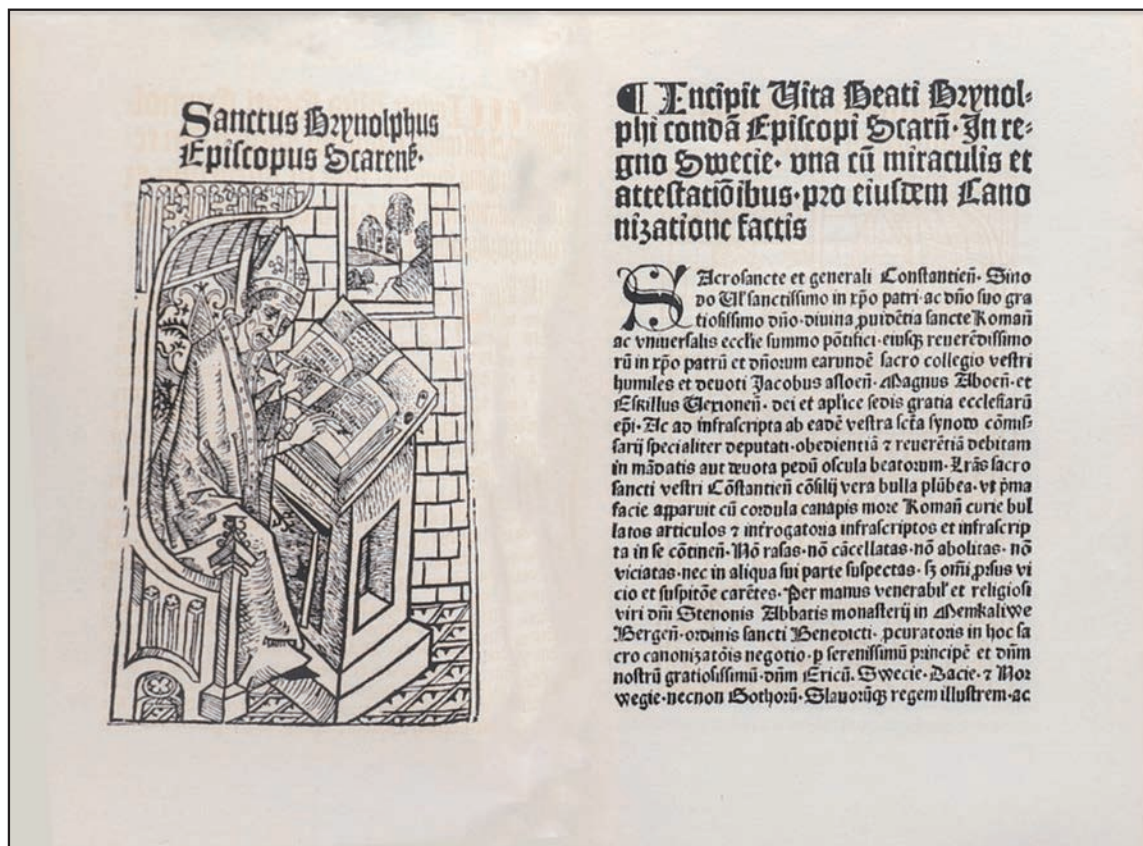 Sanctus Brynolphus
Episcopus Scareñ.
¶ Incipit Vita Beati Brynol⸗
phi condã Episcopi Scareñ. In re⸗
gno Swecie. vna cũ miraculis et
attestatiõibus. pro eiusdem Cano
nizatione factis
SAcrosancte et generali Constantieñ. Sino
do Vl' sanctissimo in xp̃o patri ac dño suo gra
tiosissimo dño. diuina ꝓuidẽtia sancte Romañ
ac vniuersalis eccl'ie summo põtifici. eiusqꝫ reuerẽdissimo
rũ in xp̃o patrũ et dñorum earundẽ sacro collegio vestri
humiles et deuoti Jacobus asloeñ. Magnus Aboeñ. et
Eskillus Vexioneñ. dei et apl'ice sedis gratia ecclesiarũ
ep̃i. Ac ad infrascripta ab eadẽ vestra sctã synodo cõmis⸗
sarij specialiter deputati. obedientiã ⁊ reuerẽtiã debitam
in mãdatis aut deuota pedũ oscula beatorum. Lr̃as sacro
sancti vestri Cõstantieñ cõsilij vera bulla plũbea. vt p̃ma
facie apparuit cũ cordula canapis more Romañ curie bul
latos articulos ⁊ int̃rogatoria infrascriptos et infrascrip
ta in se cõtineñ. Nõ rasas. nõ cãcellatas. nõ abolitas. nõ
viciatas. nec in aliqua sui parte suspectas. sꝫ om̃i ꝓrsus vi
cio et suspitõe carẽtes. Per manus venerabil' et religiosi
viri dñi Stenonis Abbatis monasterij in Memkaliwe
Bergeñ. ordinis sancti Benedicti. ꝓcuratoris in hoc sa
cro canonizatõis negotio. ꝑ serenissimũ principẽ et dñm
nostrũ gratiosissimũ. dñm Ericũ. Swecie. Dacie. ⁊ Nor
wegie. necnon Gothorũ. Slauorũqꝫ regem illustrem. ac